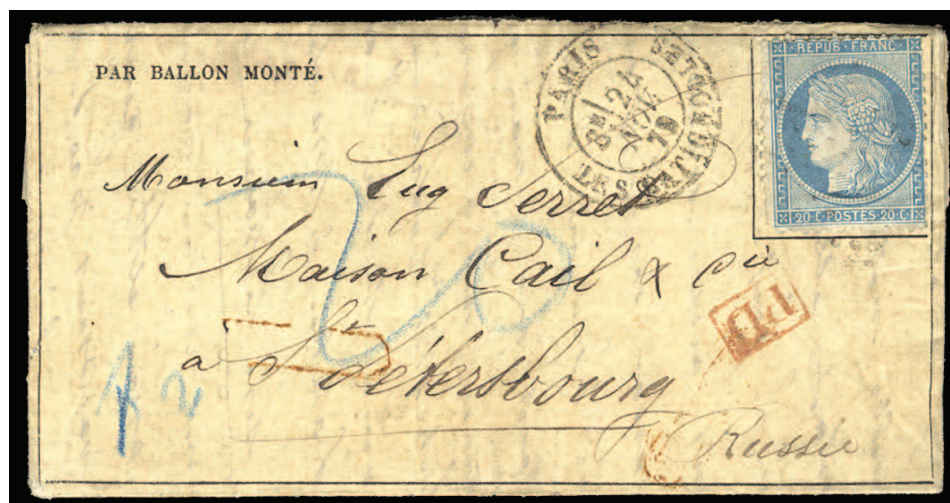 PAR BALLON MONTÉ.
PARIS
8E / 24
NOV.
70
REPUB · FRANC ·
20 · C · POSTES · 20 · C ·
Monsieur Eug Serret
Maison Cail & Cie
PD
a St Pétersbourg
Russie